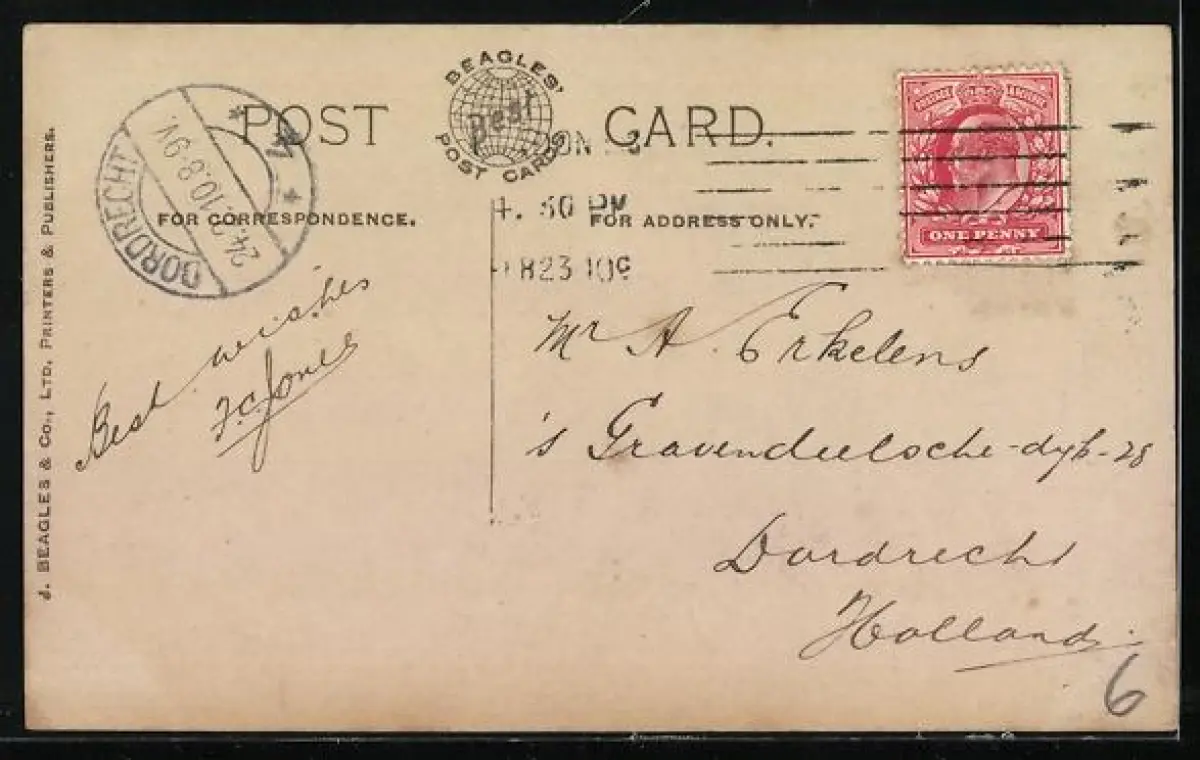 J. BEAGLES & Co., LTD. PRINTERS & PUBLISHERS.
POST CARD.
BEAGLES'
Best
POST CARDS
FOR CORRESPONDENCE.
FOR ADDRESS ONLY.
DORDRECHT
10.8-9V.
PM
823 10
POSTAGE
ONE PENNY
Best wishes
F.C. Jones
Mr A. Erkelens
's Gravendeelsche-dyk-28
Dordrecht
Holland.
6